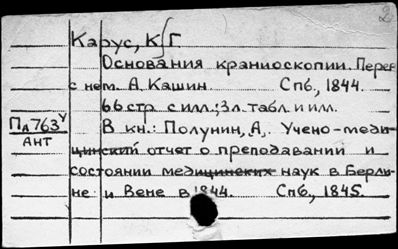 2
Карус, К Г
Основания краниоскопии. Перев
с нем. А. Кашин. Спб., 1844.
66 стр. с илл.; 3 л. табл. и илл.
Па763У В кн.: Полунин, А. Учено-меди-
Ант
цинский отчет о преподавании и
состоянии медицинских наук в Берли-
не и Вене в 1844. Спб., 1845.